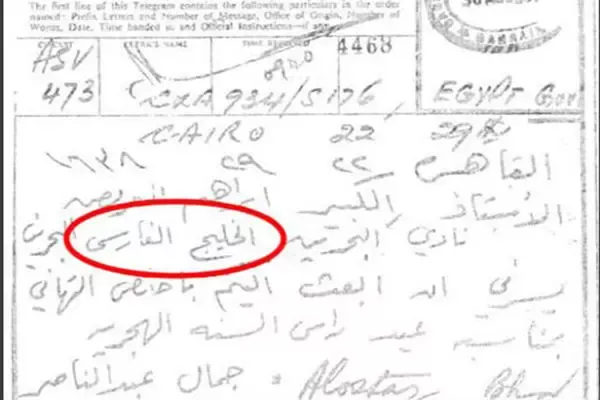 The first line of this Telegram contains the following particulars in the order
named: Prefix, Letters and Number of Message, Office of Origin, Number of
Words, Date, Time handed in and Official Instructions—if any.
CLERK'S NAME TIME RECEIVED 4468
ASV
473 CXA 934/S176 EGYPT GOVT
CAIRO 22 29
القاهرة ٢٢ ٢٩ ١٦٣٨
الأستاذ الكبير ابراهيم العريض
نادي البحرين الخليج الفارسى البحرين
يسرني ان ابعث اليكم باخلص التهاني
بمناسبة عيد راس السنه الهجريه
جمال عبدالناصر = Alostaz